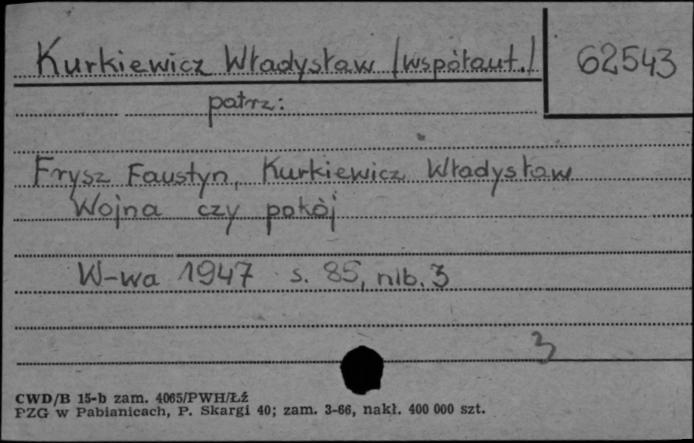 Kurkiewicz Władysław (współaut.)
62543
patrz:
Frysz Faustyn, Kurkiewicz Władysław
Wojna czy pokój
W-wa 1947 s. 85, nlb. 3
3
CWD/B 15-b zam. 4065/PWH/Łź
PZG w Pabianicach, P. Skargi 40; zam. 3-66, nakł. 400 000 szt.